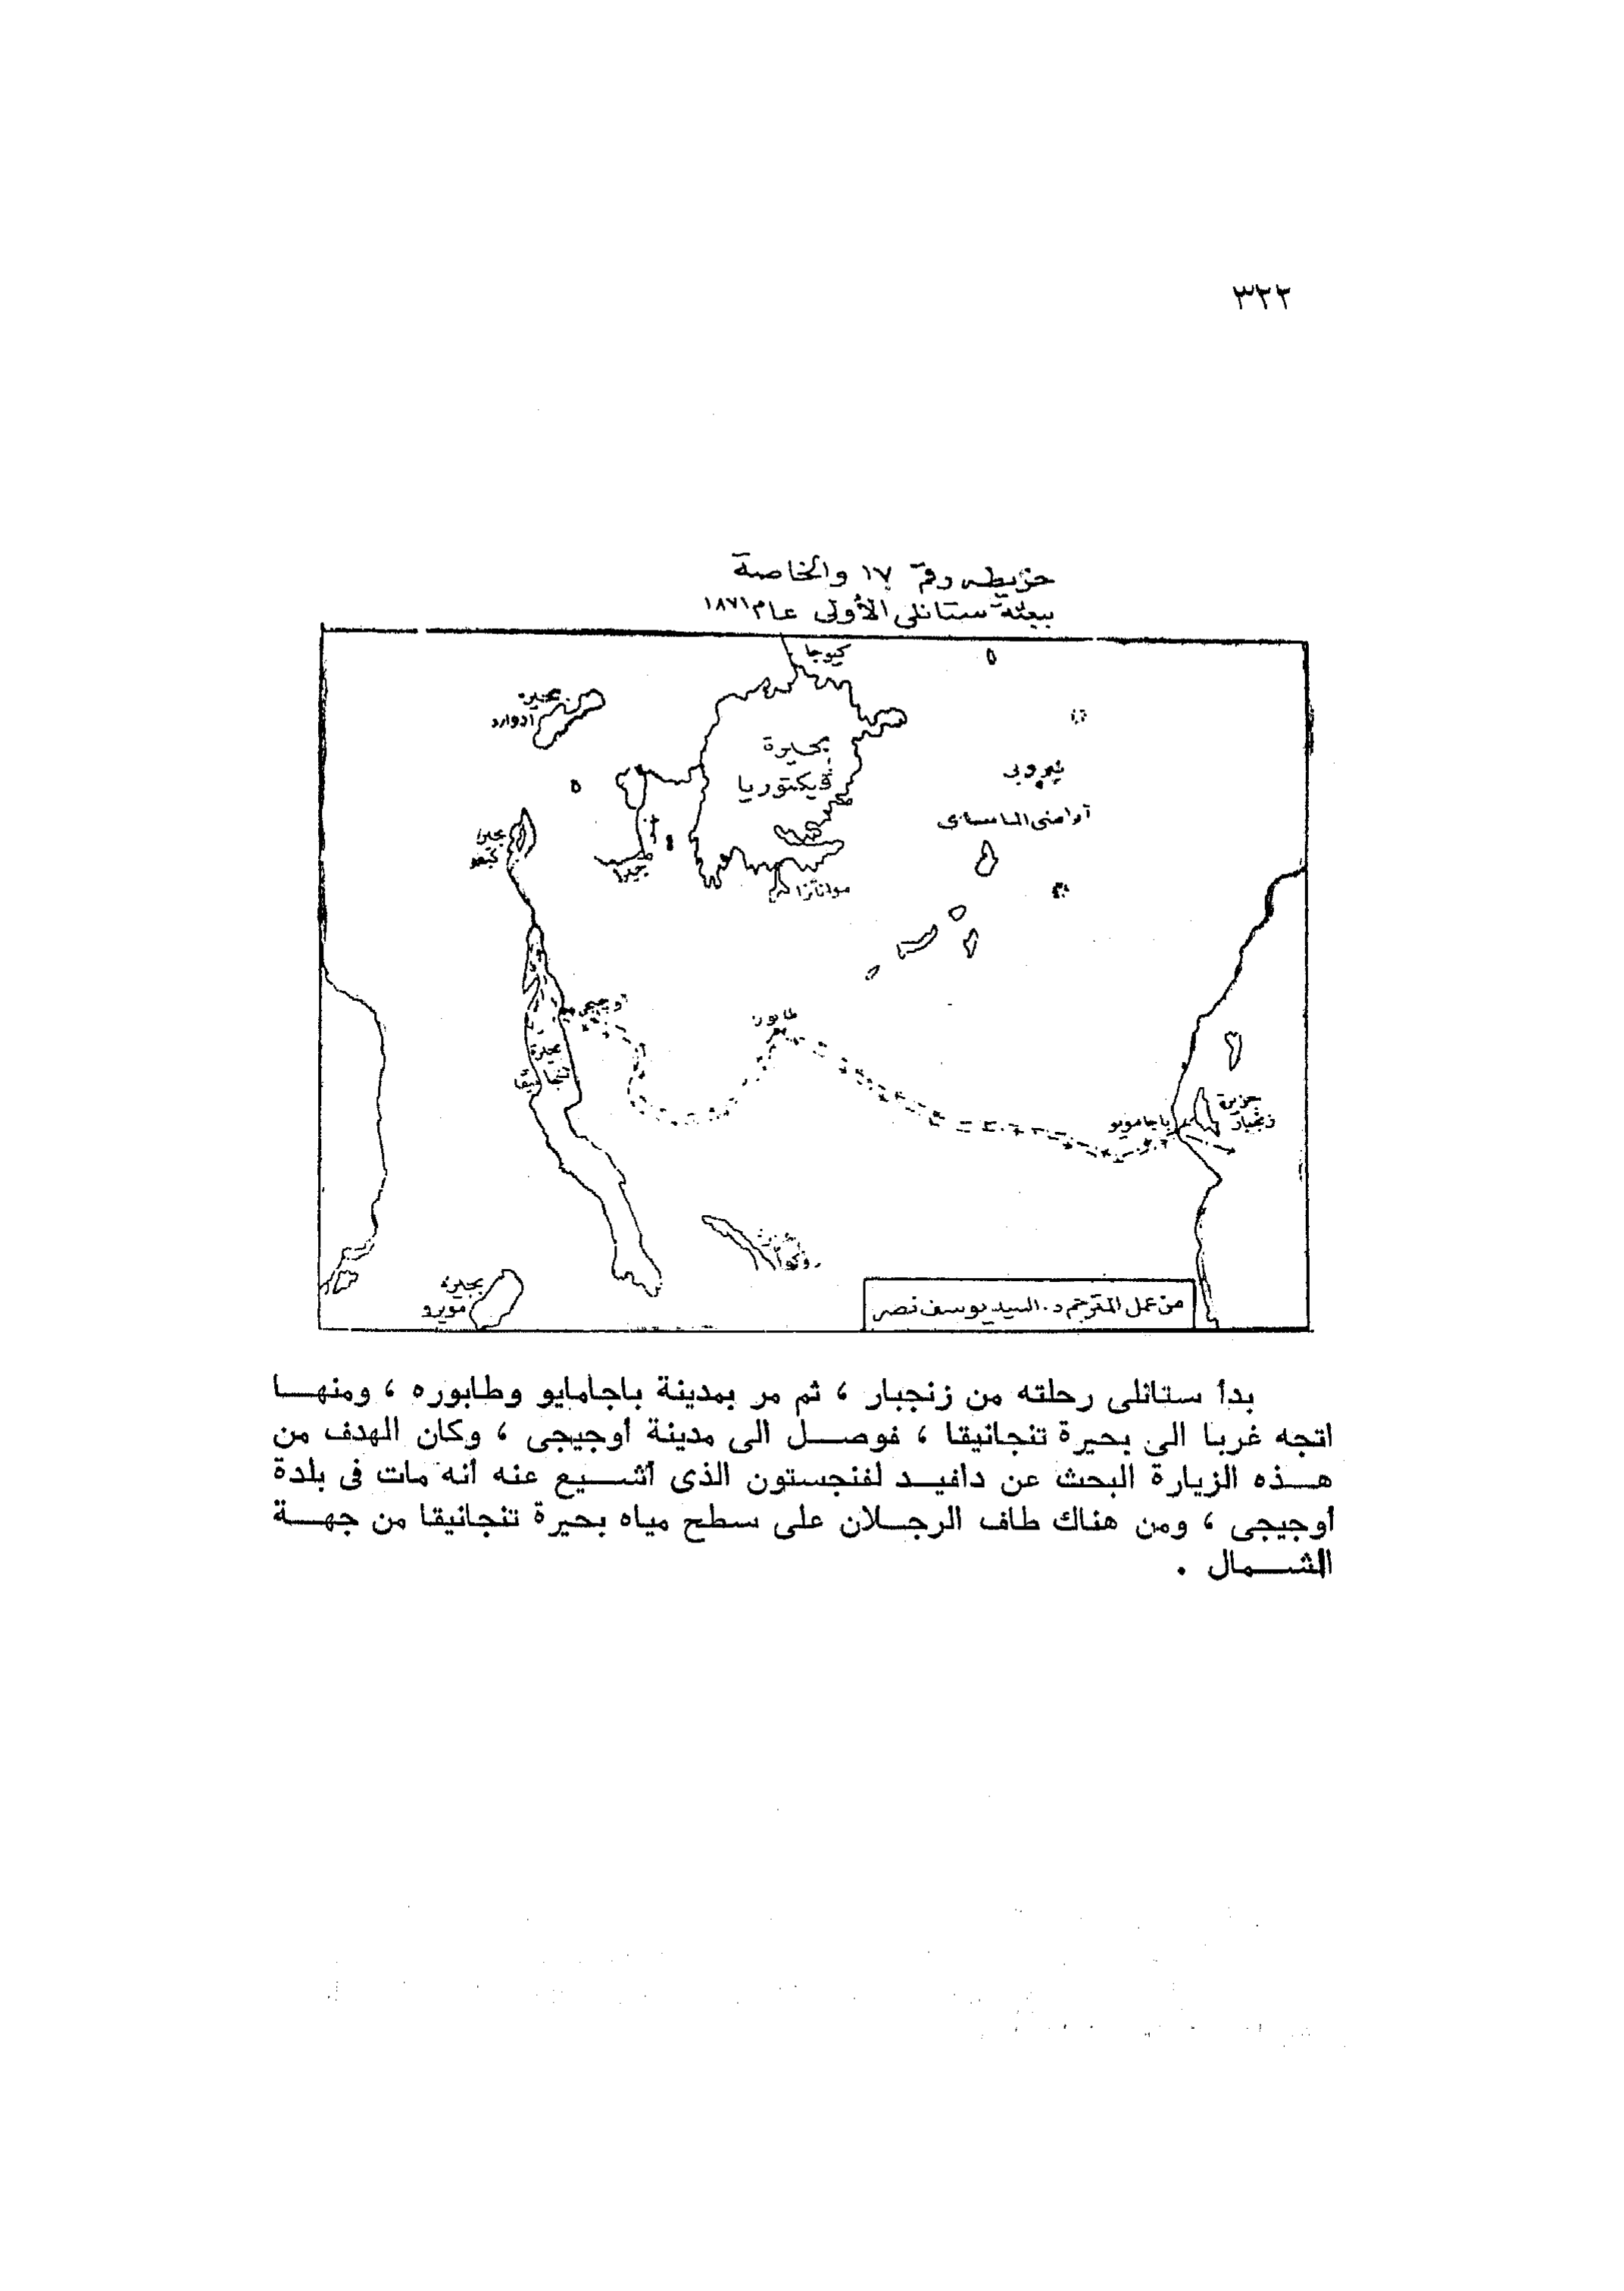 ٣٢٢
خريطه رقم ١٧ والخاصة
ببعثة ستانلى الأولى عام ١٨٧١
كيوجا
بحيرة
ادوارد
بحيرة
ڤيكتوريا
نيروبى
أراضى الماساى
بحيرة
كيفو
موانزا
أوجيجى
طابوره
بحيرة
تنجانيقا
جزيرة
زنجبار
باجامويو
روكوا
بحيرة
مويرو
من عمل المترجم د. السيد يوسف نصر
بدأ ستانلى رحلته من زنجبار ، ثم مر بمدينة باجامايو وطابوره ، ومنهــا
اتجه غربا الى بحيرة تنجانيقا ، فوصــل الى مدينة أوجيجى ، وكان الهدف من
هــذه الزيارة البحث عن دافيــد لفنجستون الذى أشــيع عنه أنه مات فى بلدة
أوجيجى ، ومن هناك طاف الرجــلان على سطح مياه بحيرة تنجانيقا من جهــة
الشــمال .